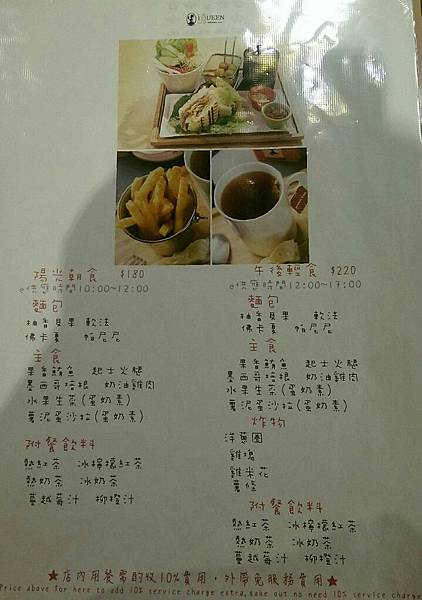 iQUEEN
陽光朝食 $180
供應時間10:00~12:00
麵包
柚香貝果 軟法
佛卡夏 帕尼尼
主食
果香鮪魚 起士火腿
墨西哥培根 奶油雞肉
水果生菜(蛋奶素)
薯泥蛋沙拉(蛋奶素)
附餐飲料
熱紅茶 冰檸檬紅茶
熱奶茶 冰奶茶
蔓越莓汁 柳橙汁
午後輕食 $220
供應時間12:00~17:00
麵包
柚香貝果 軟法
佛卡夏 帕尼尼
主食
果香鮪魚 起士火腿
墨西哥培根 奶油雞肉
水果生菜(蛋奶素)
薯泥蛋沙拉(蛋奶素)
炸物
洋蔥圈
雞塊
雞米花
薯條
附餐飲料
熱紅茶 冰檸檬紅茶
熱奶茶 冰奶茶
蔓越莓汁 柳橙汁
★店內用餐需酌收10%費用,外帶免服務費用★
Price above for here to add 10% service charge extra,take out no need 10% service charge